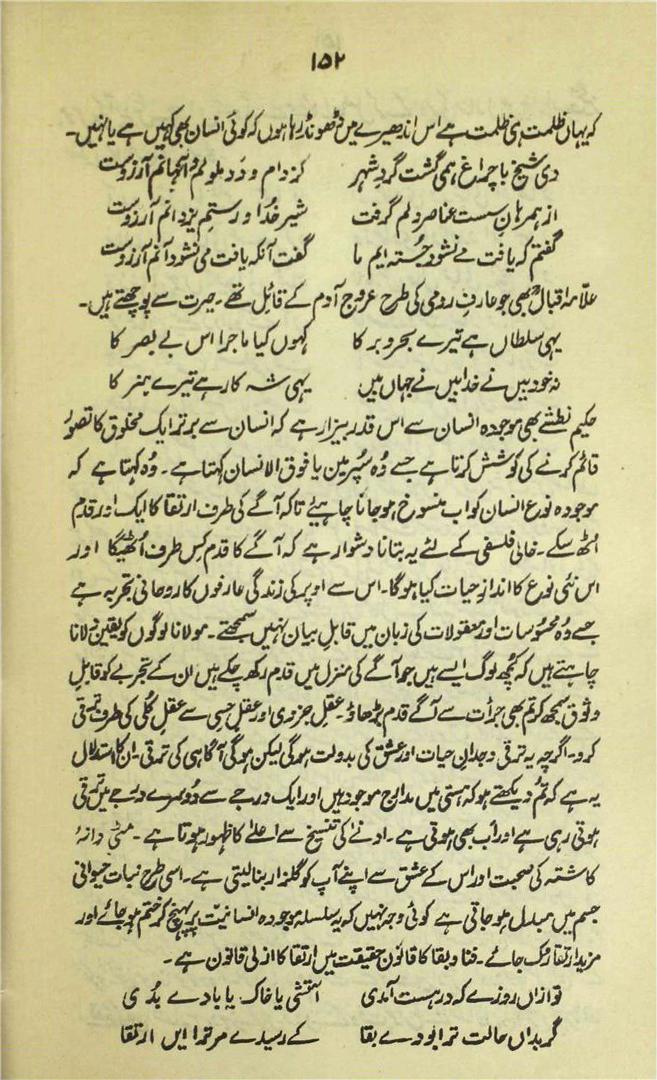 ۱۵۲
کہ یہاں ظلمت ہی ظلمت ہے اس اندھیرے میں ڈھونڈ رہا ہوں کہ کوئی انسان بھی کہیں ہے یا نہیں۔
دی شیخ با چراغ ہمی گشت گردِ شہر کز دام و دَد ملولم و انسانم آرزوست
از ہمرہانِ سست عناصر دلم گرفت شیرِ خُدا و رستمِ یزدانم آرزوست
گفتم کہ یافت مے نشود جُستہ ایم ما گفت آنکہ یافت می نشود آنم آرزوست
علّامہ اقبالؒ بھی جو عارفِ رومی کی طرح عروجِ آدم کے قائل تھے۔ حیرت سے پوچھتے ہیں۔
یہی سلطاں ہے تیرے بحر و بر کا کہوں کیا ماجرا اس بے بصر کا
نہ خود بیں نے خدا بیں نے جہاں بیں یہی شہ کار ہے تیرے ہنر کا
حکیم نطشے بھی موجودہ انسان سے اس قدر بیزار ہے کہ انسان سے برتر ایک مخلوق کا تصوّر
قائم کرنے کی کوشش کرتا ہے جسے وُہ سُپرمین یا فوق الانسان کہتا ہے۔ وُہ کہتا ہے کہ
موجودہ نوعِ انسان کو اب منسوخ ہو جانا چاہیئے تاکہ آگے کی طرف ارتقا کا ایک اور قدم
اٹھ سکے۔ خالی فلسفی کے لئے یہ بتانا دشوار ہے کہ آگے کا قدم کِس طرف اُٹھیگا اور
اس نئی نوع کا اندازِ حیات کیا ہوگا۔ اس سے اوپر کی زندگی عارفوں کا روحانی تجربہ ہے
جسے وُہ محسُوسات اور معقولات کی زبان میں قابلِ بیان نہیں سمجھتے۔ مولانا لوگوں کو یقین دلانا
چاہتے ہیں کہ کُچھ لوگ ایسے ہیں جو آگے کی منزل میں قدم رکھ چکے ہیں ان کے تجربے کو قابلِ
وثوق سمجھ کر تم بھی جرأت سے آگے قدم بڑھاؤ۔ عقلِ جزوی اور عقلِ حسی سے عقلِ کُلی کی طرف ترقی
کرو۔ اگرچہ یہ ترقی وجدانِ حیات اور عشق کی بدولت ہوگی لیکن ہوگی آگاہی کی ترقی۔ ان کا استدلال
یہ ہے کہ تُم دیکھتے ہو کہ ہستی میں مدارج موجود ہیں اور ایک درجے سے دُوسرے درجے میں ترقی
ہوتی رہی ہے اور اَب بھی ہوتی ہے۔ ادنےٰ کی تنسیخ سے اعلےٰ کا ظہور ہوتا ہے۔ مٹی دانۂ
کاشتہ کی صحبت اور اس کے عشق سے اپنے آپ کو گلزار بنا لیتی ہے۔ اسی طرح نبات حیوانی
جسم میں مبدل ہو جاتی ہے کوئی وجہ نہیں کہ یہ سلسلہ موجودہ انسانیّت پر پہنچ کر ختم ہو جائے اور
مزید ارتقا رُک جائے۔ فنا و بقا کا قانون حقیقت میں ارتقا کا ازلی قانون ہے۔
تو ازاں روزے کہ در ہست آمدی آتشی یا خاک یا بادے بدُی
گر بداں حالت ترا بودے بقا کے رسیدے مر ترا ایں ارتقا